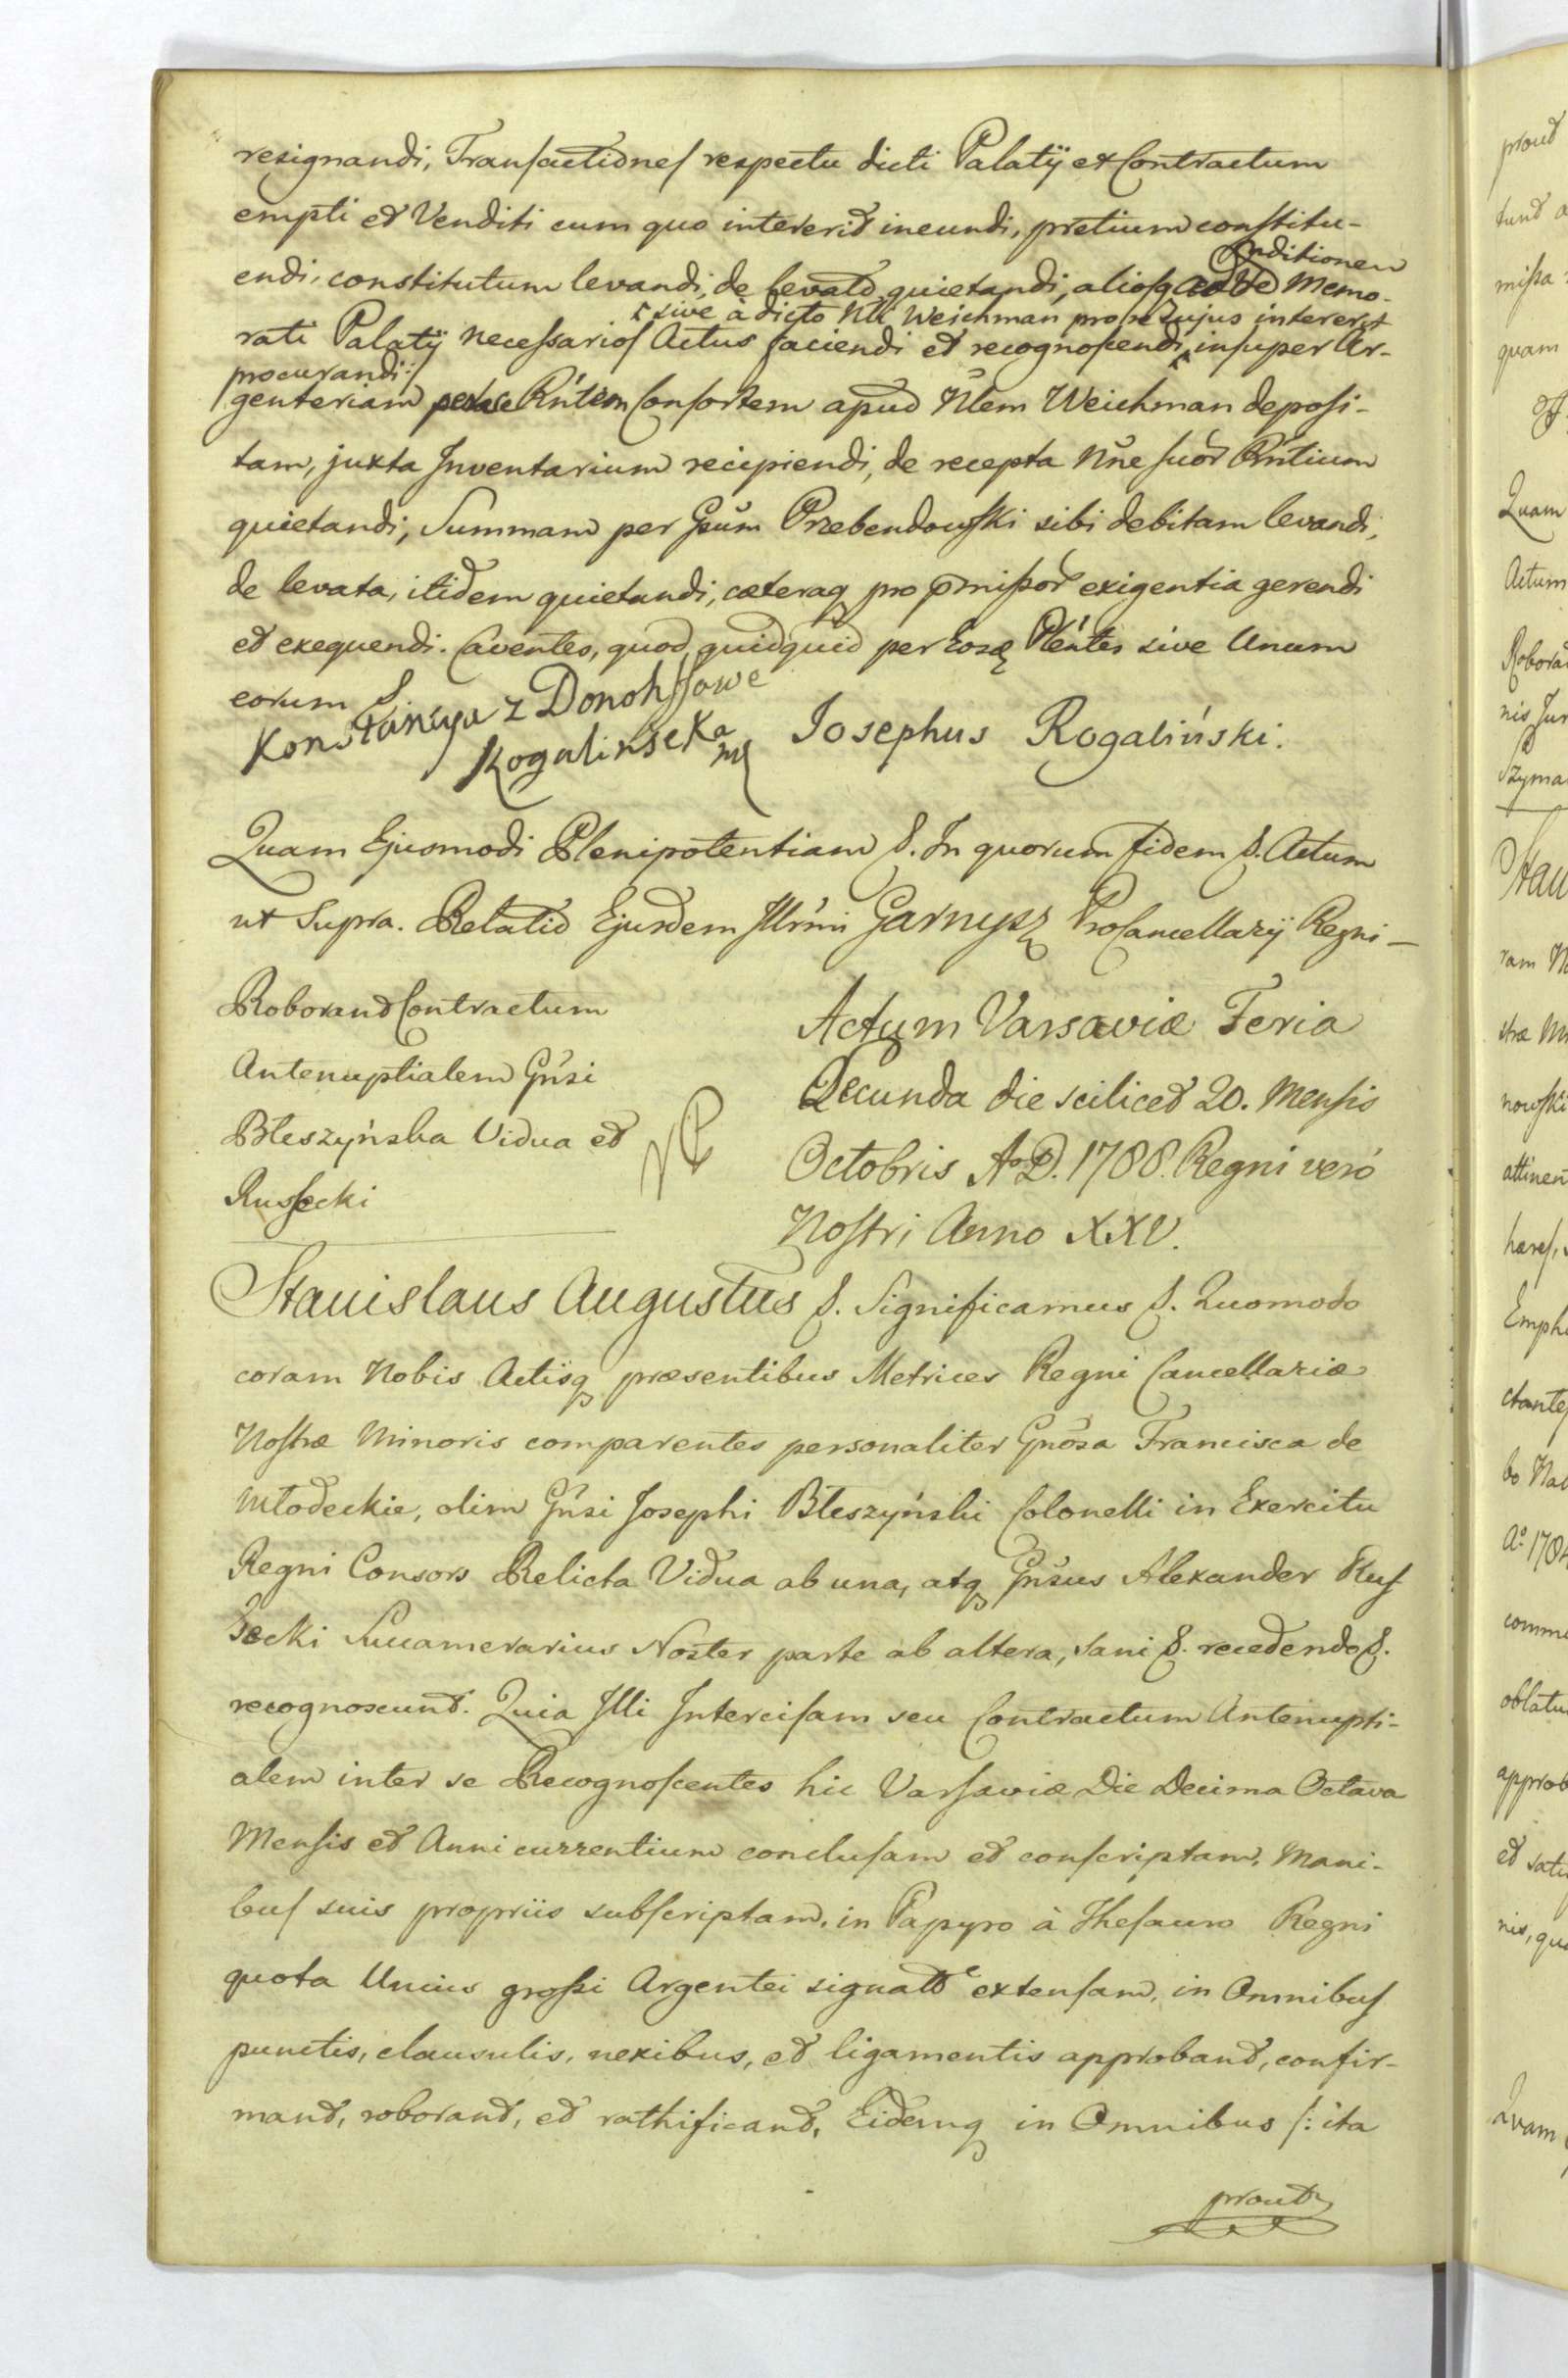 resignandi, Transactiones respectu dicti Palatÿ et Contractum
empti et Venditi cum quo intererit ineundi, pretium constitu-
onditionem
endi, constitutum levandi, de levato quietandi, aliosq ad Memo-
sive à dicto Nli Weichman pro se cujus intererit
rati Palatÿ necessarios Actus faciendi et recognoscendi, insuper Ar-
procurandi:/
genteriam per Rñtem Consortem apud Nlem Weichman deposi-
tam, juxta Inventarium recipiendi, de recepta Nñe suor Pñtium
quietandi, Summam per Gsum Przebendowski sibi debitam levandi,
de levata, itidem quietandi, cæteraq pro pmissor exigentia gerendi
et exequendi. Caventes, quod quidquid per Eosq Plentes sive Unum
eorum &.
Konstancya z Donohssowe
Rogalinseka mp Josephus Rogaliński.
Quam Ejusmodi Plenipotentiam &. In quorum fidem &. Actum
ut Supra. Relatio Ejusdem Illrmi Garnysz ProCancellarÿ Regni—
Roborand Contractum
Antenuptialem Gñsi
Błeszyńska Vidua et
Russecki
Actum Varsaviæ Feria
Secunda die scilicet 20. Mensis
Octobris A°D. 1788. Regni veró
Nostri Anno XXV.
Stanislaus Augustus &. Significamus &. Quomodo
coram Nobis Actisq præsentibus Metrices Regni Cancellariæ
Nostræ Minoris comparentes personaliter Gñosa Francisca de
Młodeckie, olim Gñsi Josephi Błeszyński Colonelli in Exercitu
Regni Consors Relicta Vidua ab una, atq Gñsus Alexander Rus
secki Succamerarius Noster parte ab altera, sani &. recedendo &.
recognoscunt. Quia Illi Intercisam seu Contractum Antenupti-
alem inter se Recognoscentes hic Varsaviæ Die Decima Octava
Mensis et Anni currentium conclusam et conscriptam, Mani-
bus suis propriis subscriptam, in Papyro à Thesauro Regni
quota Unius grossi Argentei signato extensam, in Omnibus
punctis, clausulis, nexibus, et ligamentis approband, confir-
mand, roborand, et rathificand, Eidemq in Omnibus /: ita
prout